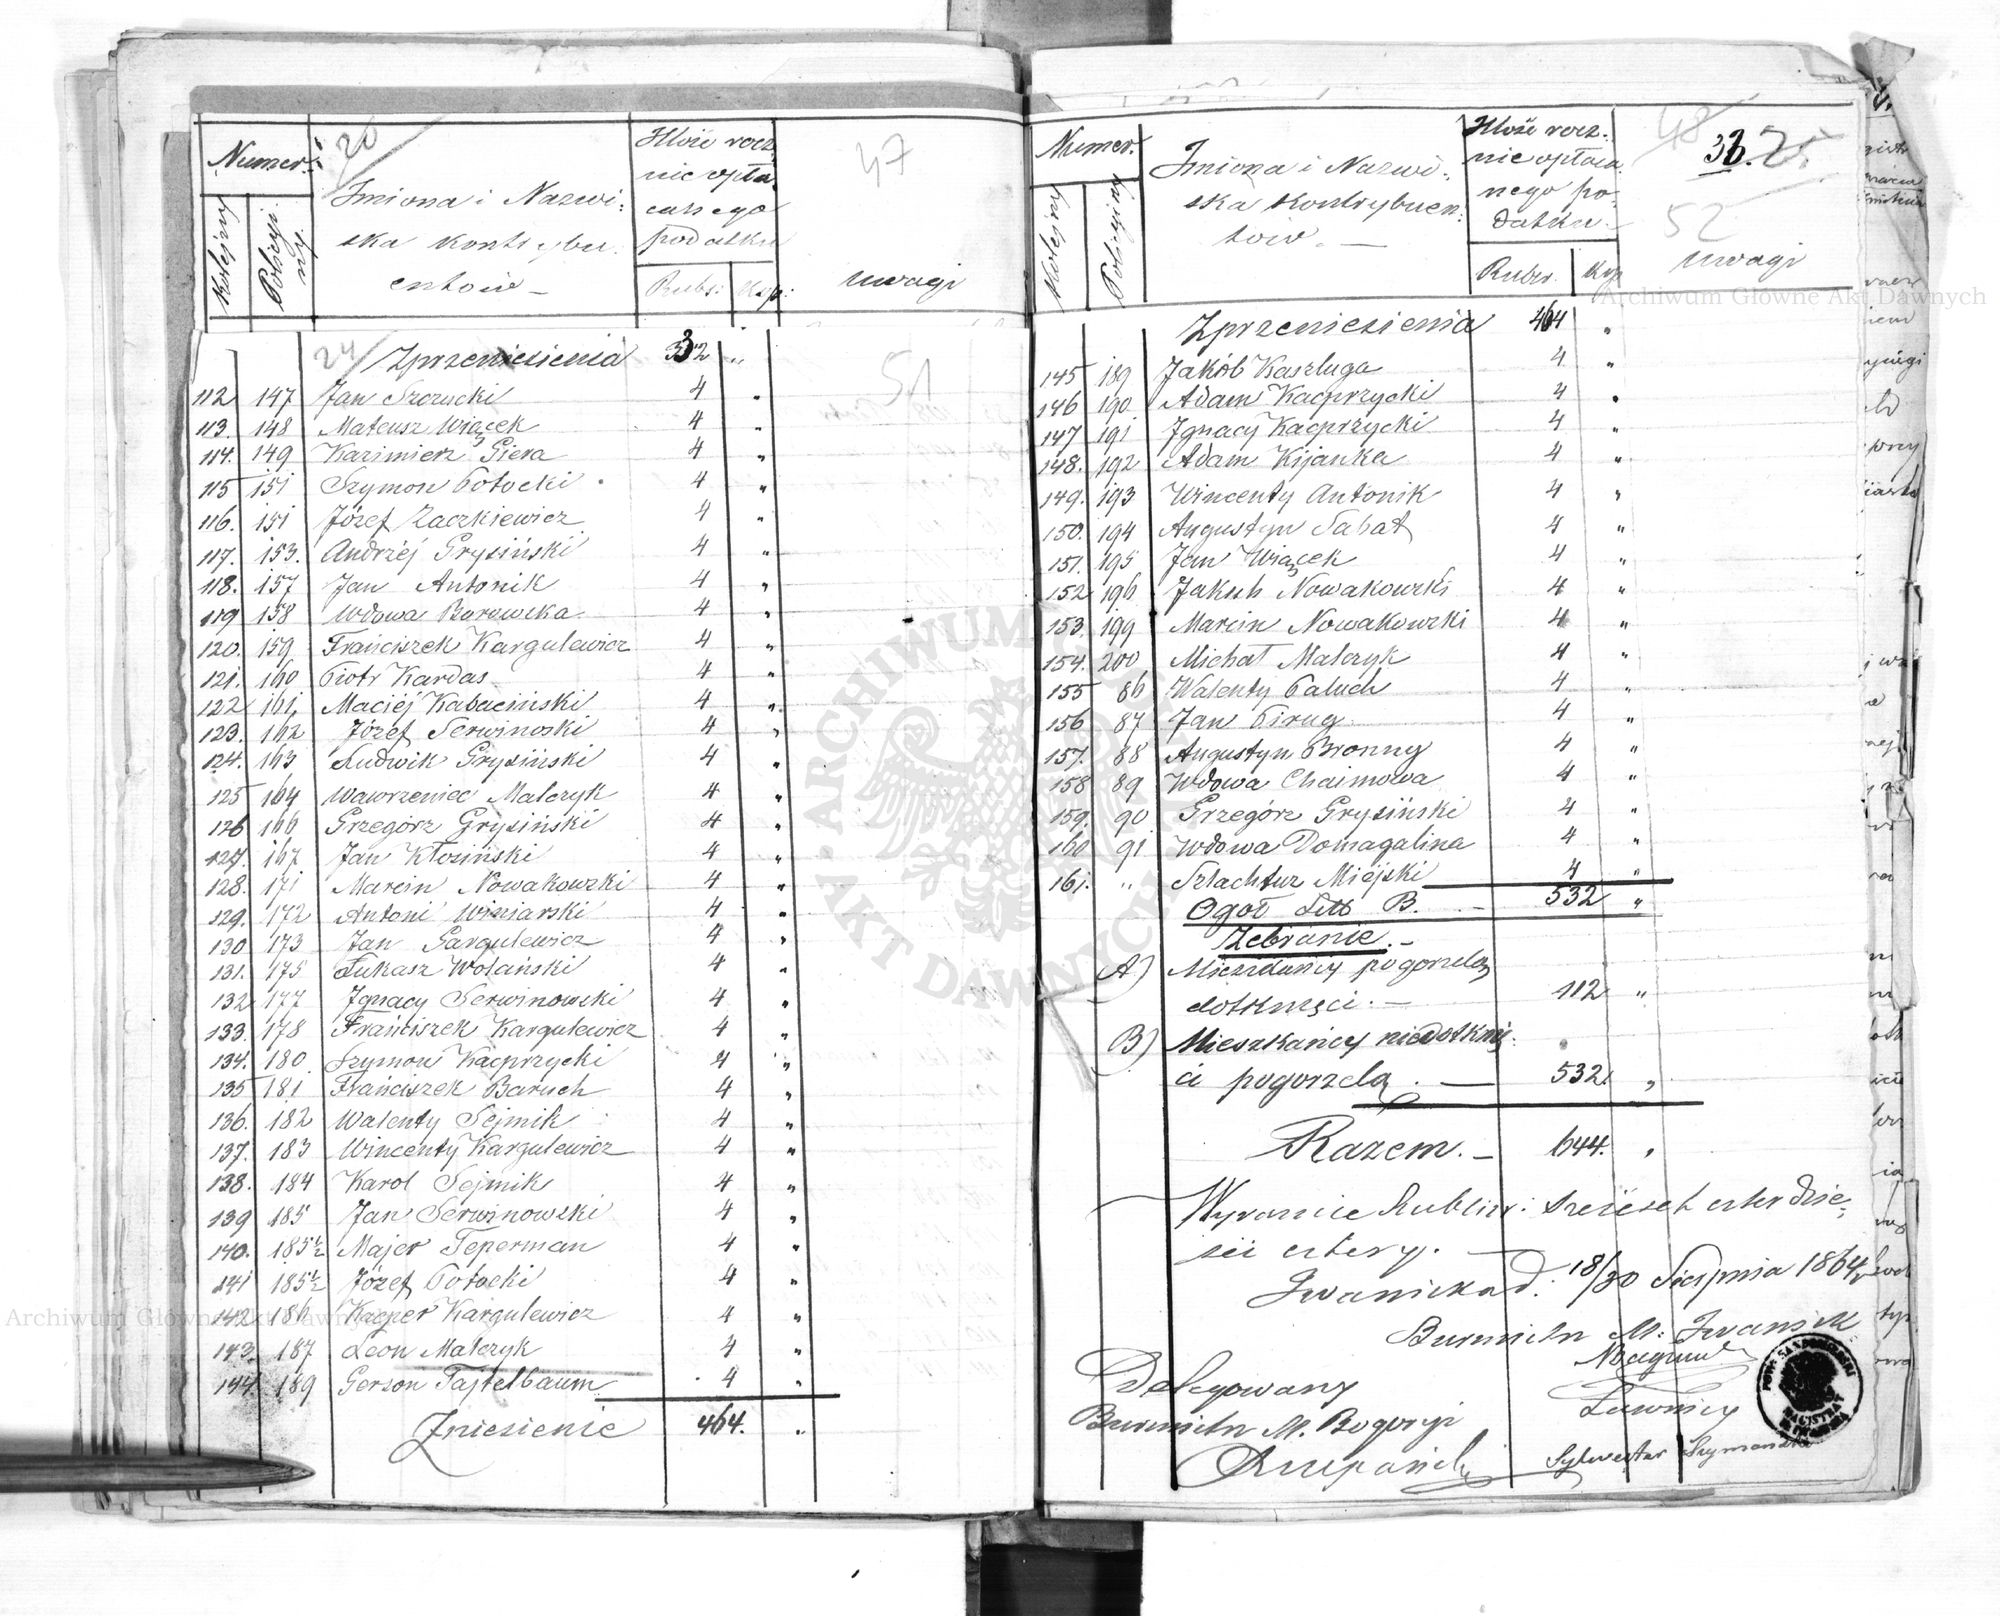 20
47
Numer:
Imiona i Nazwi:
ska Kontrybu
entów
Ilość rocz
nie opła
canego
podatku
Kolejny
Policyj
ny.
Rubs: Kop:
uwagi
24 Zprzeniesienia 332 "
51
112 147 Jan Szczucki 4 "
113. 148 Mateusz Wiącek 4 "
114. 149 Kazimierz Giera 4 "
115 151 Szymon Potocki 4 "
116. 151 Józef Zaczkiewicz 4 "
117. 153. Andrzéj Grysiński 4 "
118. 157 Jan Antonik 4 "
119 158 Wdowa Borowska 4 "
120. 159 Franciszek Kargulewicz 4 "
121. 160 Piotr Kardas 4 "
122 161 Maciéj Kabaciński 4 "
123. 162 Józef Serwinoski 4 "
124. 163 Ludwik Grysiński 4 "
125 164 Wawrzeniec Malczyk 4 "
126 166 Grzegórz Grysiński 4 "
127. 167 Jan Kłosiński 4 "
128. 171 Marcin Nowakowski 4 "
129. 172 Antoni Winiarski 4 "
130 173 Jan Gargulewicz 4 "
131. 175 Łukasz Wolański 4 "
132 177 Ignacy Serwinowski 4 "
133. 178 Franciszek Kargulewicz 4 "
134. 180 Szymon Kacprzycki 4 "
135 181 Franciszek Baruch 4 "
136. 182 Walenty Sejmik 4 "
137. 183 Wincenty Kargulewicz 4 "
138. 184 Karol Sejmik 4 "
139 185 Jan Serwinowski 4 "
140. 185½ Majer Teperman 4 "
141 185½ Józef Potocki 4 "
142 186 Kacper Kargulewicz 4 "
143. 187 Leon Malczyk 4 "
144. 189 Gerson Tajtelbaum 4 "
Zniesienie 464. "
48
52
Numer.
Imiona i Nazwi:
ska Kontrybuen:
tów. —
Ilość rocz:
nie opłaca
nego po-
datku.
Kolejny
Policyjny
Rubsr. Kop
uwagi
Zprzeniesienia 464 "
145 189 Jakób Kaszluga 4 "
146 190 Adam Kacprzycki 4 "
147 191 Ignacy Kacprzycki 4 "
148. 192 Adam Kijanka 4 "
149. 193 Wincenty Antonik 4 "
150. 194 Augustyn Sabat 4 "
151. 195 Jan Wiącek 4 "
152 196 Jakub Nowakowski 4 "
153. 199 Marcin Nowakowski 4 "
154. 200 Michał Malczyk 4 "
155 86 Walenty Paluch 4 "
156 87 Jan Pirug 4 "
157. 88 Augustyn Bronny 4 "
158 89 Wdowa Chaimowa 4 "
159. 90 Grzegórz Grysiński 4 "
160 91 Wdowa Domagalina 4 "
161. " Szlachtuz Miéjski 4 "
Ogół Litt B. — 532 "
Zebranie. —
A) Mieszkańcy pogorzelą
dotknięci. — 112 "
B) Mieszkańcy niedotknię:
ci pogorzelą. — 532. "
Razem. — 644. "
Wyraznie Rublisr: sześćset czterdzie:
ści cztery. —
Iwaniska d. 18/30 Sierpnia 1864 r
Burmistrz M. Iwanisk
Delegowany
Burmistrz M. Bogoryi
Ławnicy
Sylwester Szymański
ARCHIWUM GŁÓWNE AKT DAWNYCH
Archiwum Główne Akt Dawnych
Archiwum Główne Akt Dawnych